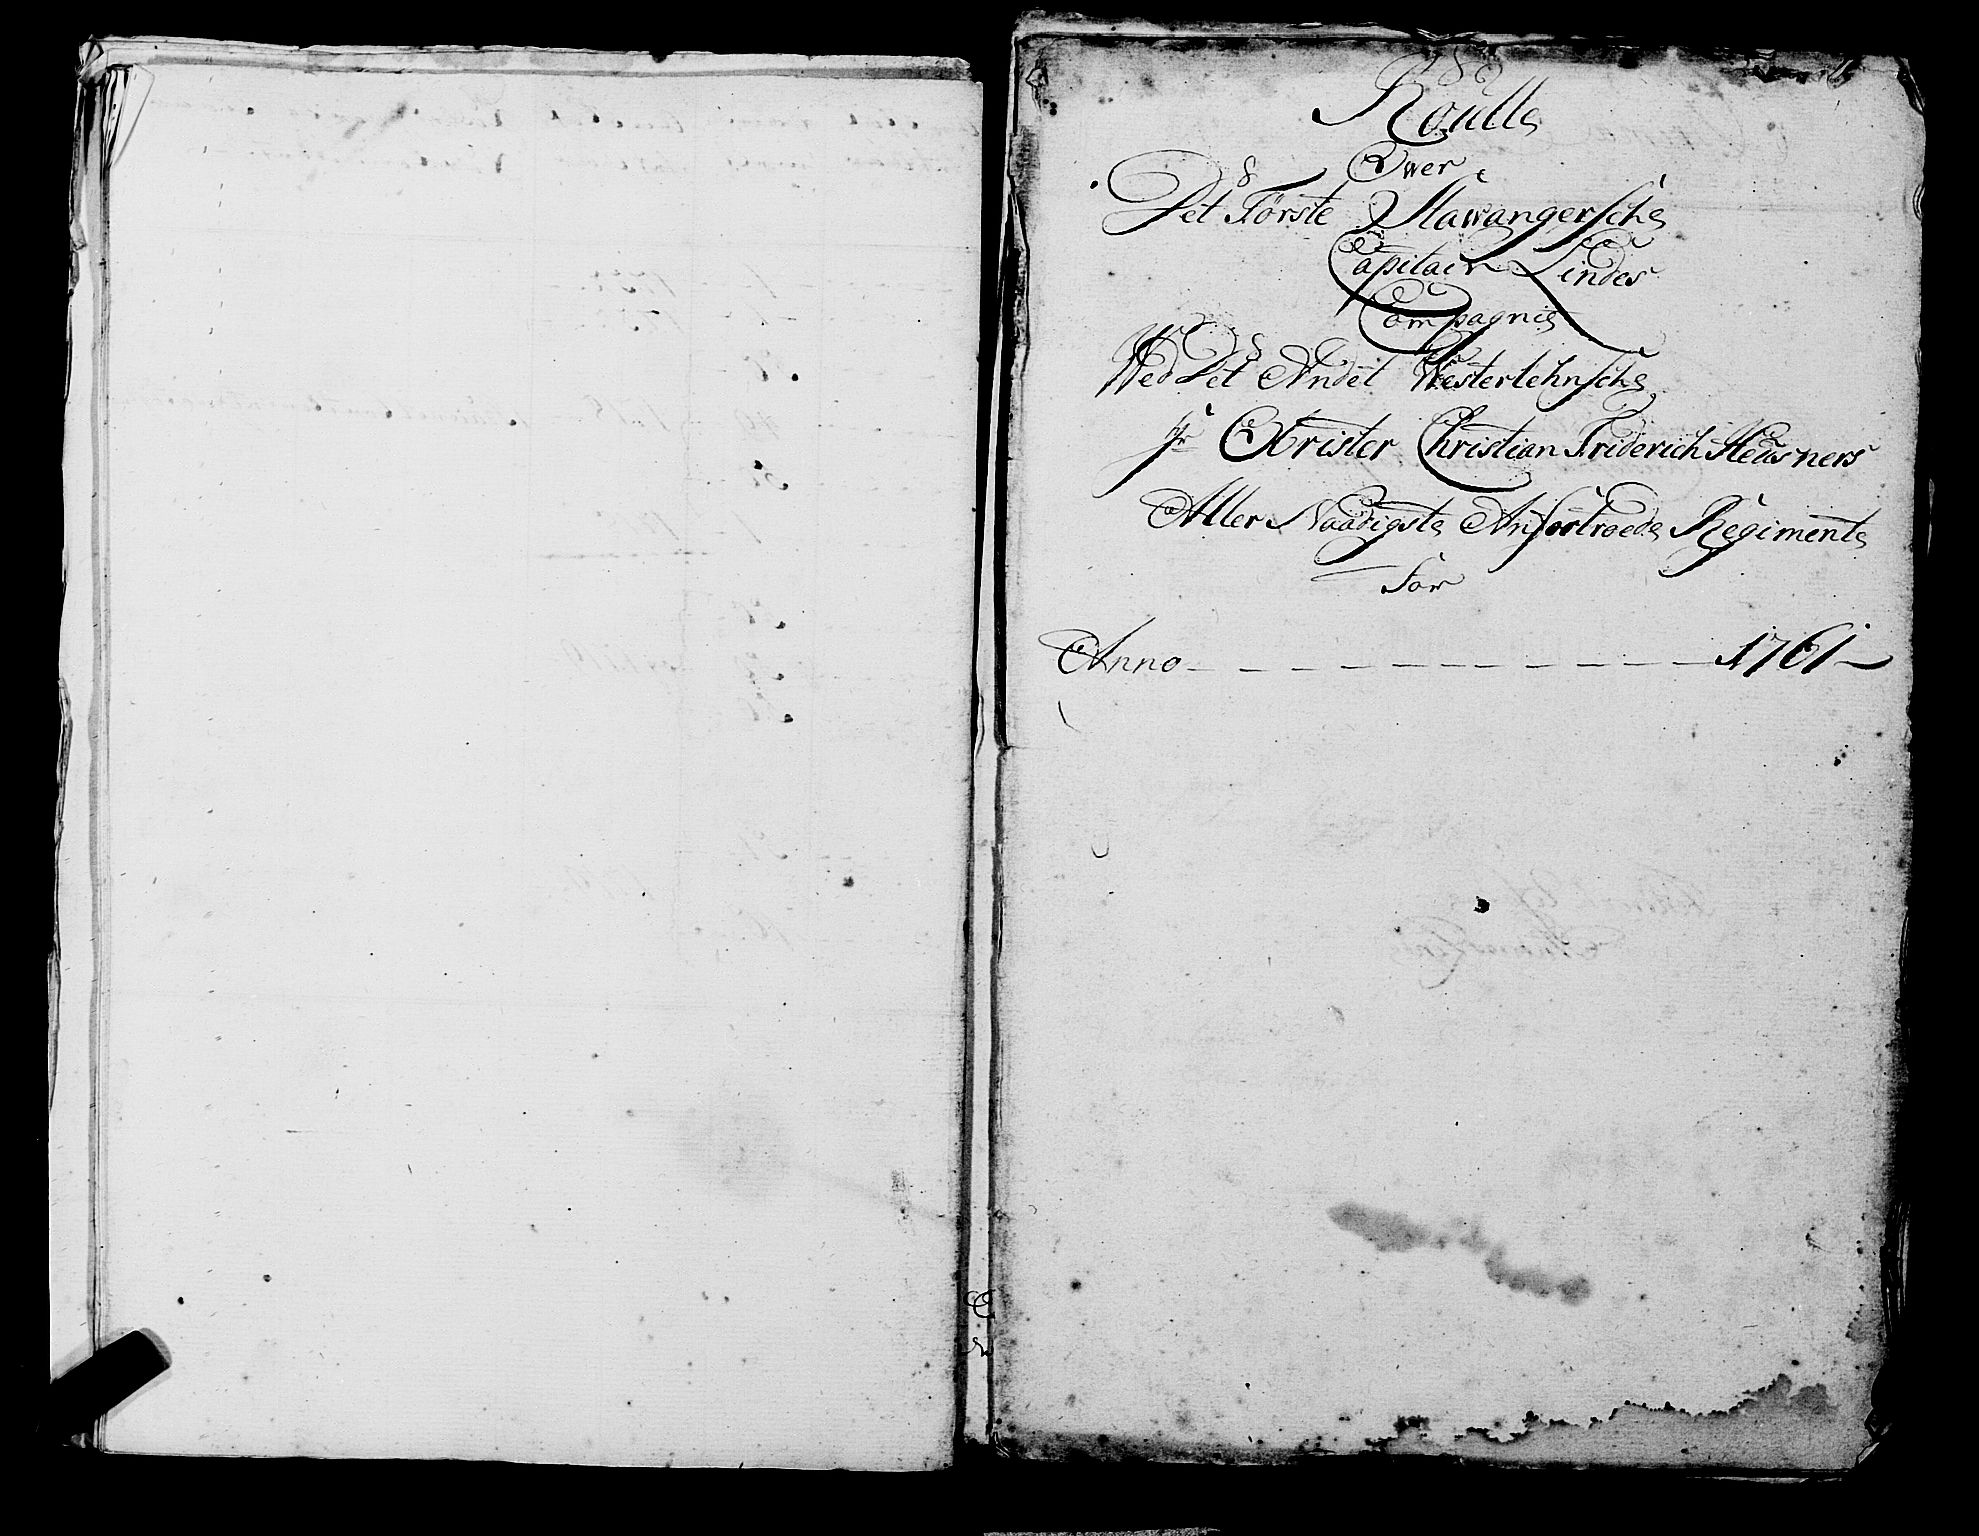 Roulle
Over
Det Første Stawangersche
Capitain Lindes
Compagnie
Wed Det Andet Westerlehnsche
Hr Obrister Christian Friderich Heüsners
Aller Naadigste Anfortroede Regimente
For
Anno 1761